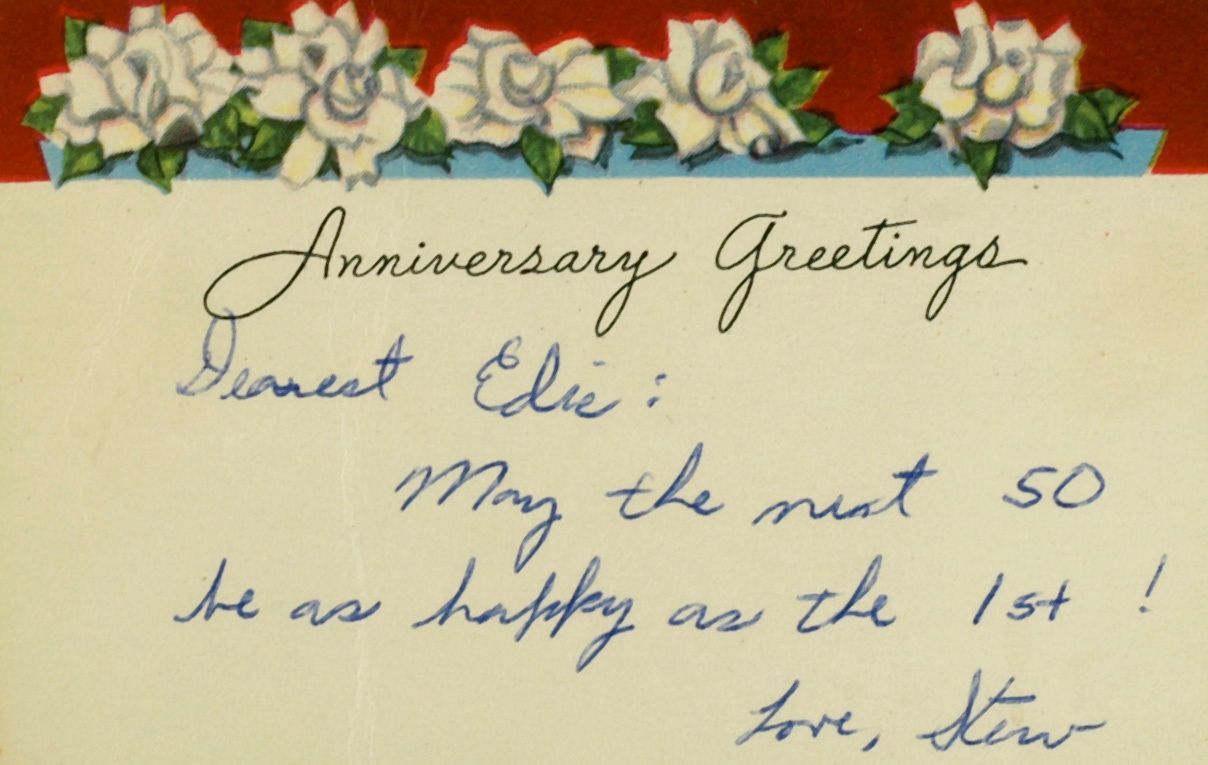 Anniversary Greetings
Dearest Edie:
May the next 50
be as happy as the 1st!
Love, Stew